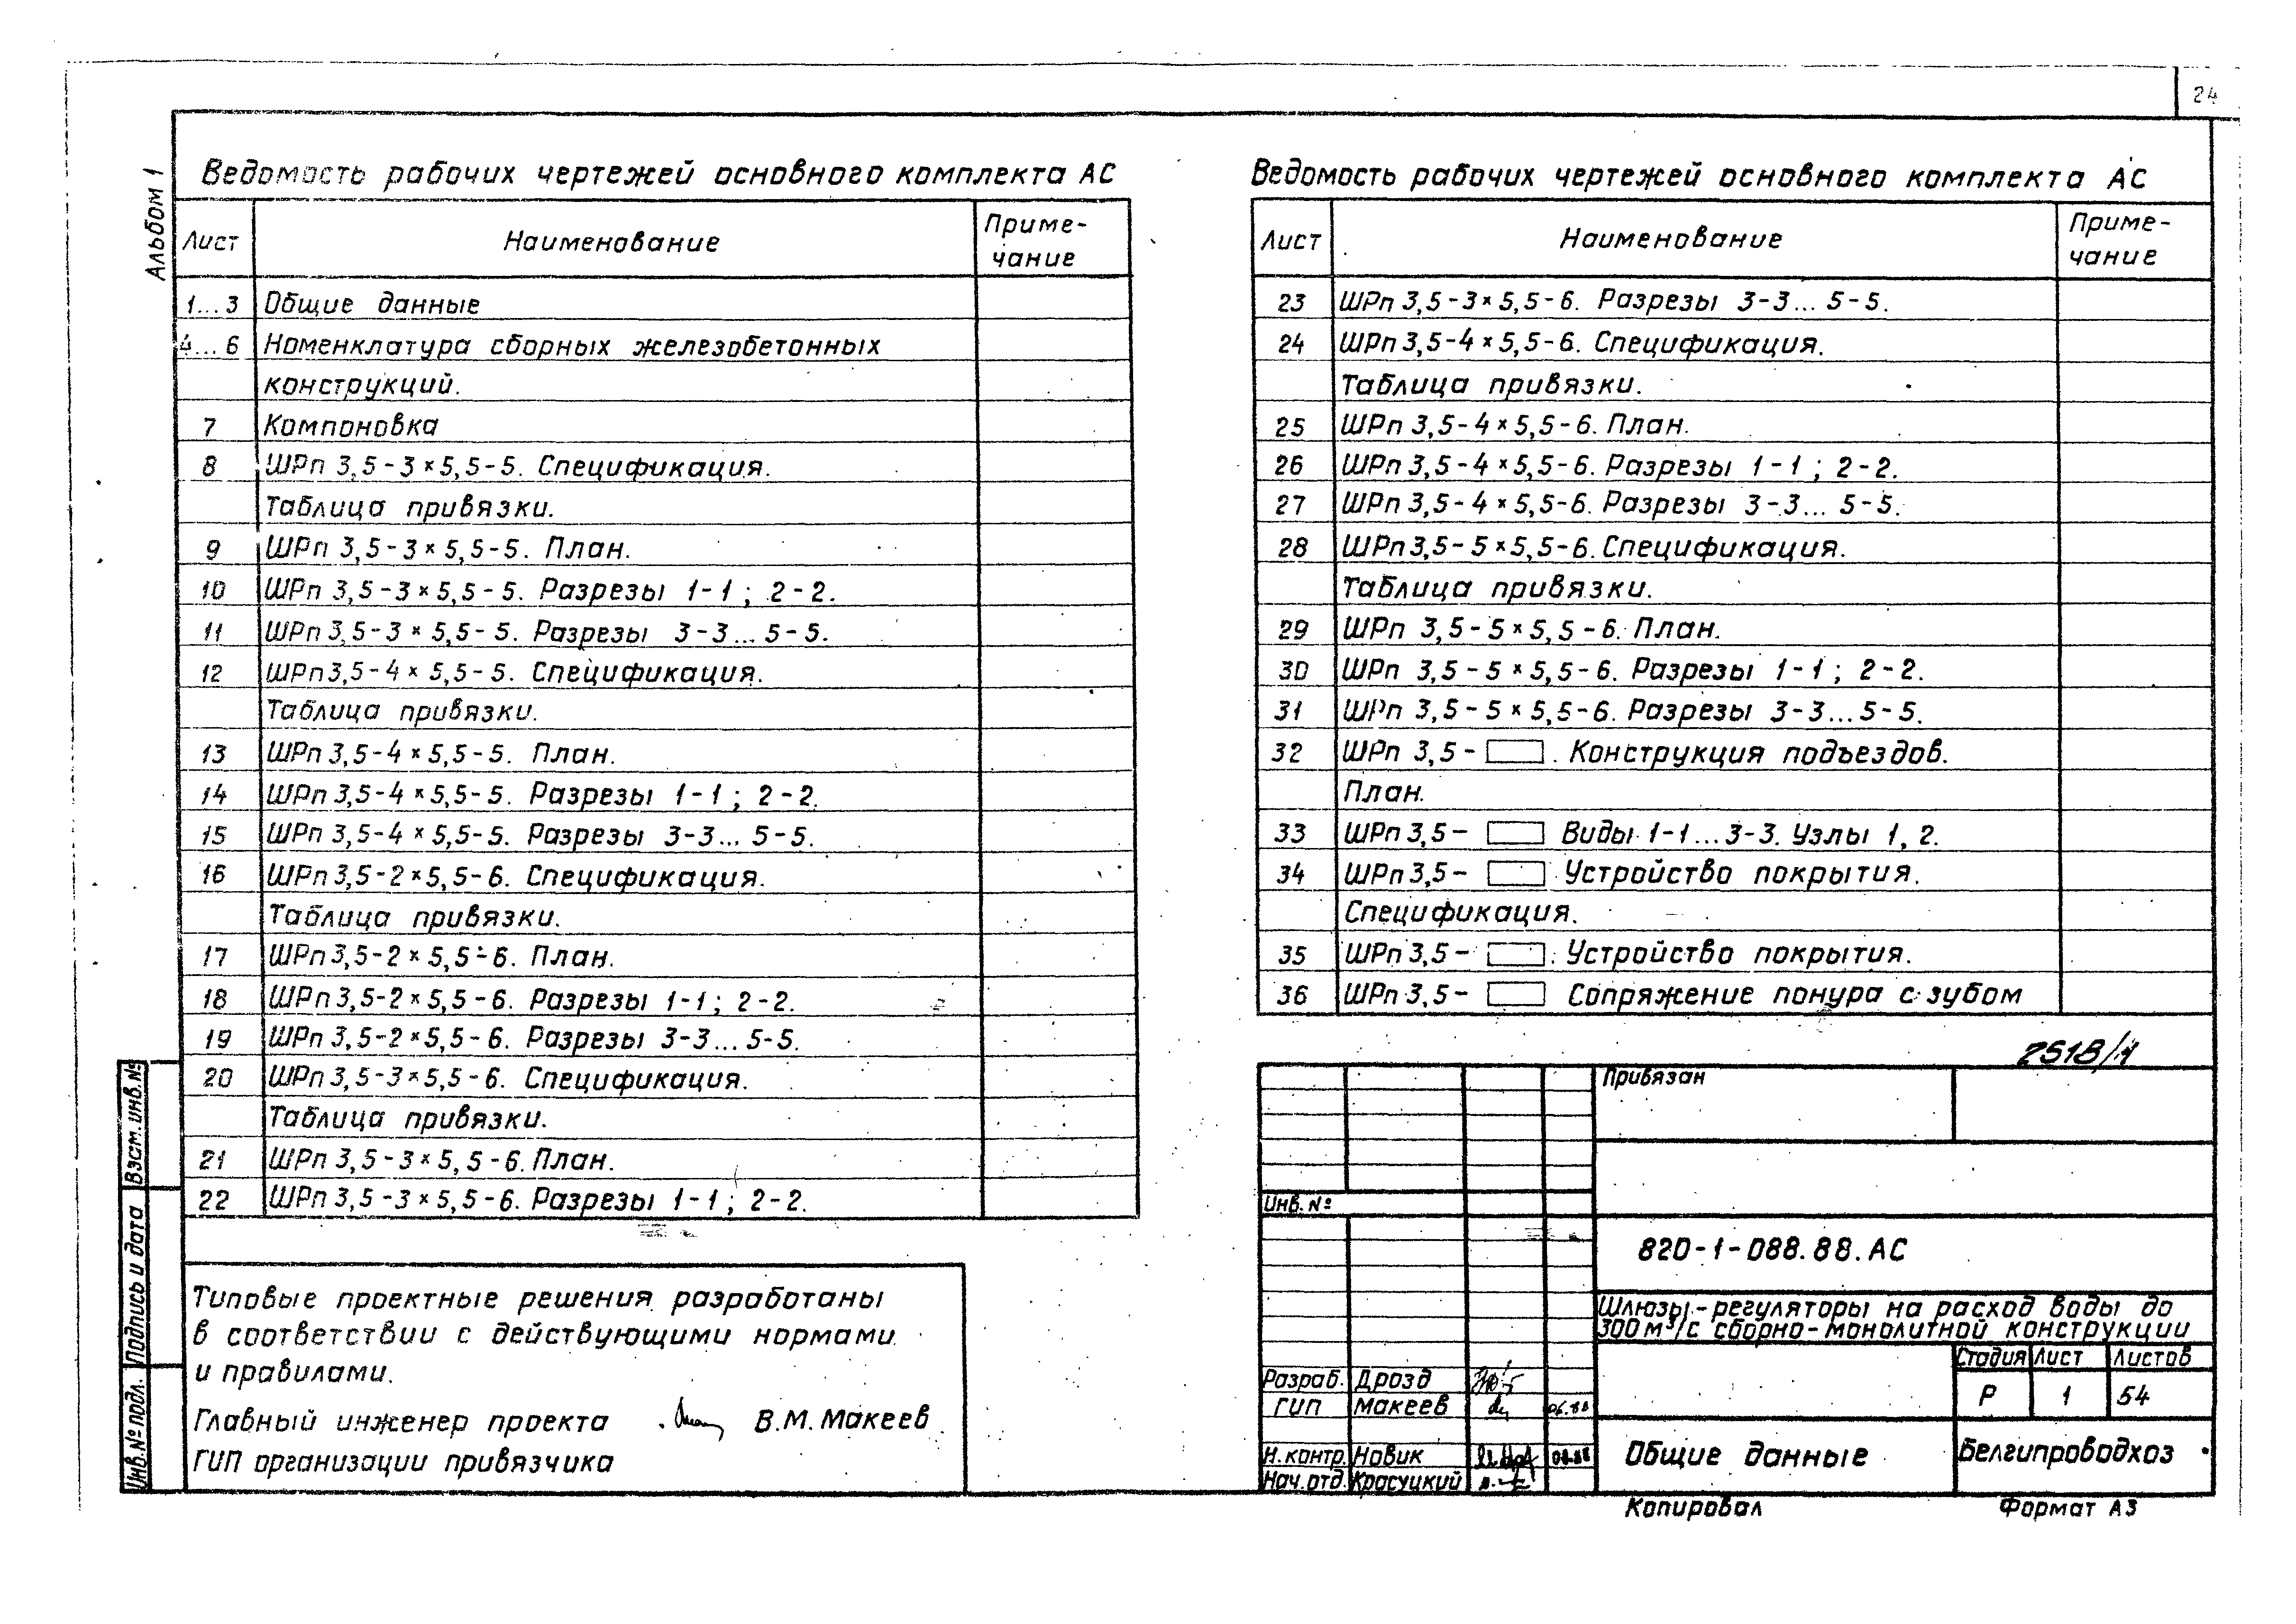 24
Альбом 1
Ведомость рабочих чертежей основного комплекта АС
Лист Наименование Приме-
чание
1...3 Общие данные
4...6 Номенклатура сборных железобетонных
конструкций.
7 Компоновка
8 ШРп 3,5-3×5,5-5. Спецификация.
Таблица привязки.
9 ШРп 3,5-3×5,5-5. План.
10 ШРп 3,5-3×5,5-5. Разрезы 1-1; 2-2.
11 ШРп 3,5-3×5,5-5. Разрезы 3-3...5-5.
12 ШРп 3,5-4×5,5-5. Спецификация.
Таблица привязки.
13 ШРп 3,5-4×5,5-5. План.
14 ШРп 3,5-4×5,5-5. Разрезы 1-1; 2-2.
15 ШРп 3,5-4×5,5-5. Разрезы 3-3...5-5.
16 ШРп 3,5-2×5,5-6. Спецификация.
Таблица привязки.
17 ШРп 3,5-2×5,5-6. План.
18 ШРп 3,5-2×5,5-6. Разрезы 1-1; 2-2.
19 ШРп 3,5-2×5,5-6. Разрезы 3-3...5-5.
20 ШРп 3,5-3×5,5-6. Спецификация.
Таблица привязки.
21 ШРп 3,5-3×5,5-6. План.
22 ШРп 3,5-3×5,5-6. Разрезы 1-1; 2-2.
Ведомость рабочих чертежей основного комплекта АС
Лист Наименование Приме-
чание
23 ШРп 3,5-3×5,5-6. Разрезы 3-3...5-5.
24 ШРп 3,5-4×5,5-6. Спецификация.
Таблица привязки.
25 ШРп 3,5-4×5,5-6. План.
26 ШРп 3,5-4×5,5-6. Разрезы 1-1; 2-2.
27 ШРп 3,5-4×5,5-6. Разрезы 3-3...5-5.
28 ШРп 3,5-5×5,5-6. Спецификация.
Таблица привязки.
29 ШРп 3,5-5×5,5-6. План.
30 ШРп 3,5-5×5,5-6. Разрезы 1-1; 2-2.
31 ШРп 3,5-5×5,5-6. Разрезы 3-3...5-5.
32 ШРп 3,5- . Конструкция подъездов.
План.
33 ШРп 3,5- Виды 1-1...3-3. Узлы 1, 2.
34 ШРп 3,5- Устройство покрытия.
Спецификация.
35 ШРп 3,5- . Устройство покрытия.
36 ШРп 3,5- Сопряжение понура с зубом
Типовые проектные решения разработаны
в соответствии с действующими нормами
и правилами.
Главный инженер проекта В.М. Макеев
ГИП организации привязчика
Взам. инв. №
Подпись и дата
Инв. № подл.
2518/1
Привязан
Инв. №
820-1-088.88.АС
Шлюзы-регуляторы на расход воды до
300 м³/с сборно-монолитной конструкции
Стадия Лист Листов
Р 1 54
Разраб. Дрозд
ГИП Макеев 06.88
Н. контр. Новик 06.88
Нач. отд. Красуцкий
Общие данные
Белгипроводхоз
Копировал Формат А3